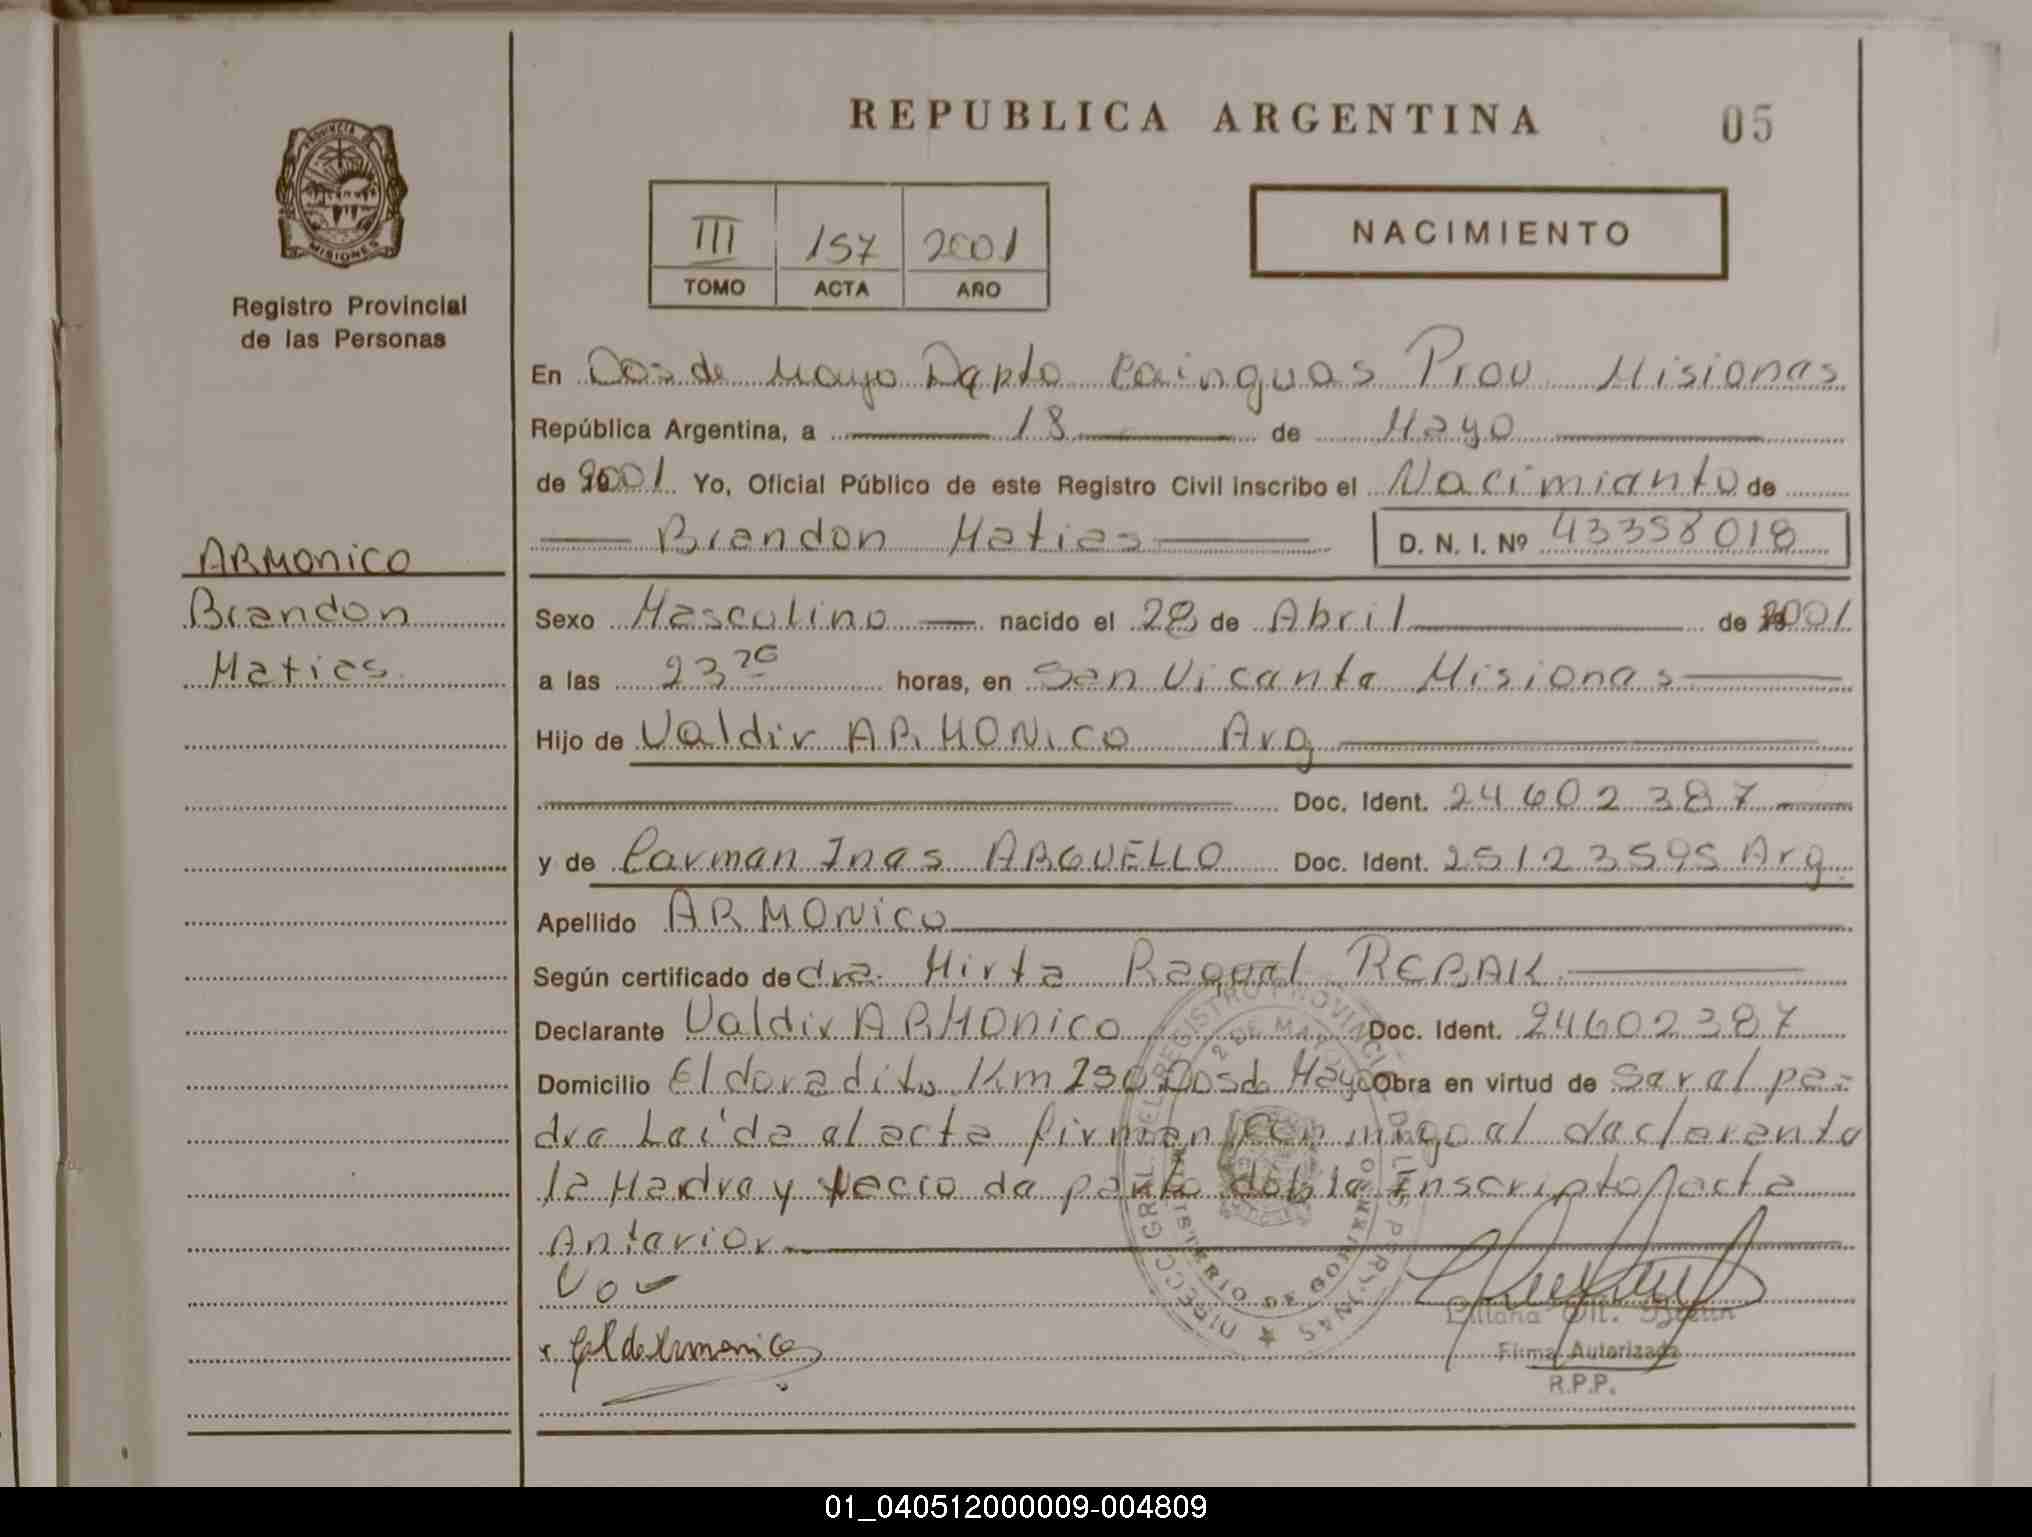 REPUBLICA ARGENTINA
05
PROVINCIA DE
MISIONES
Registro Provincial
de las Personas
III 157 2001
TOMO ACTA AÑO
NACIMIENTO
En Dos de Mayo Dapto Cainguas Prov Misionas
República Argentina, a 18 de Mayo
de 2001 Yo, Oficial Público de este Registro Civil inscribo el Nacimianto de
Brandon Matias D. N. I. Nº 43358018
ARMONICO
Brandon
Matias
Sexo Masculino nacido el 28 de Abril de 2001
a las 23 horas, en San Vicanta Misionas
Hijo de Valdir ARMONICO Arg
Doc. Ident. 24602387
y de Carman Inas ARGUELLO Doc. Ident. 25123595 Arg
Apellido ARMONICO
Según certificado de dra. Mirta Raqual REBAK
Declarante Valdir ARMONICO Doc. Ident. 24602387
Domicilio Eldoradito Km Dos d Mayo Obra en virtud de Sar al pa-
dra Laida al acta firman con migo al daclaranta
la Madra y da parto dobla Inscripto acta
Antarior
DIRECC. GRAL. DEL REGISTRO PROVINCIAL DE LAS PERSONAS
2 DE MAYO
MINISTERIO DE GOBIERNO
Firma Autorizada
R.P.P.
01_040512000009-004809